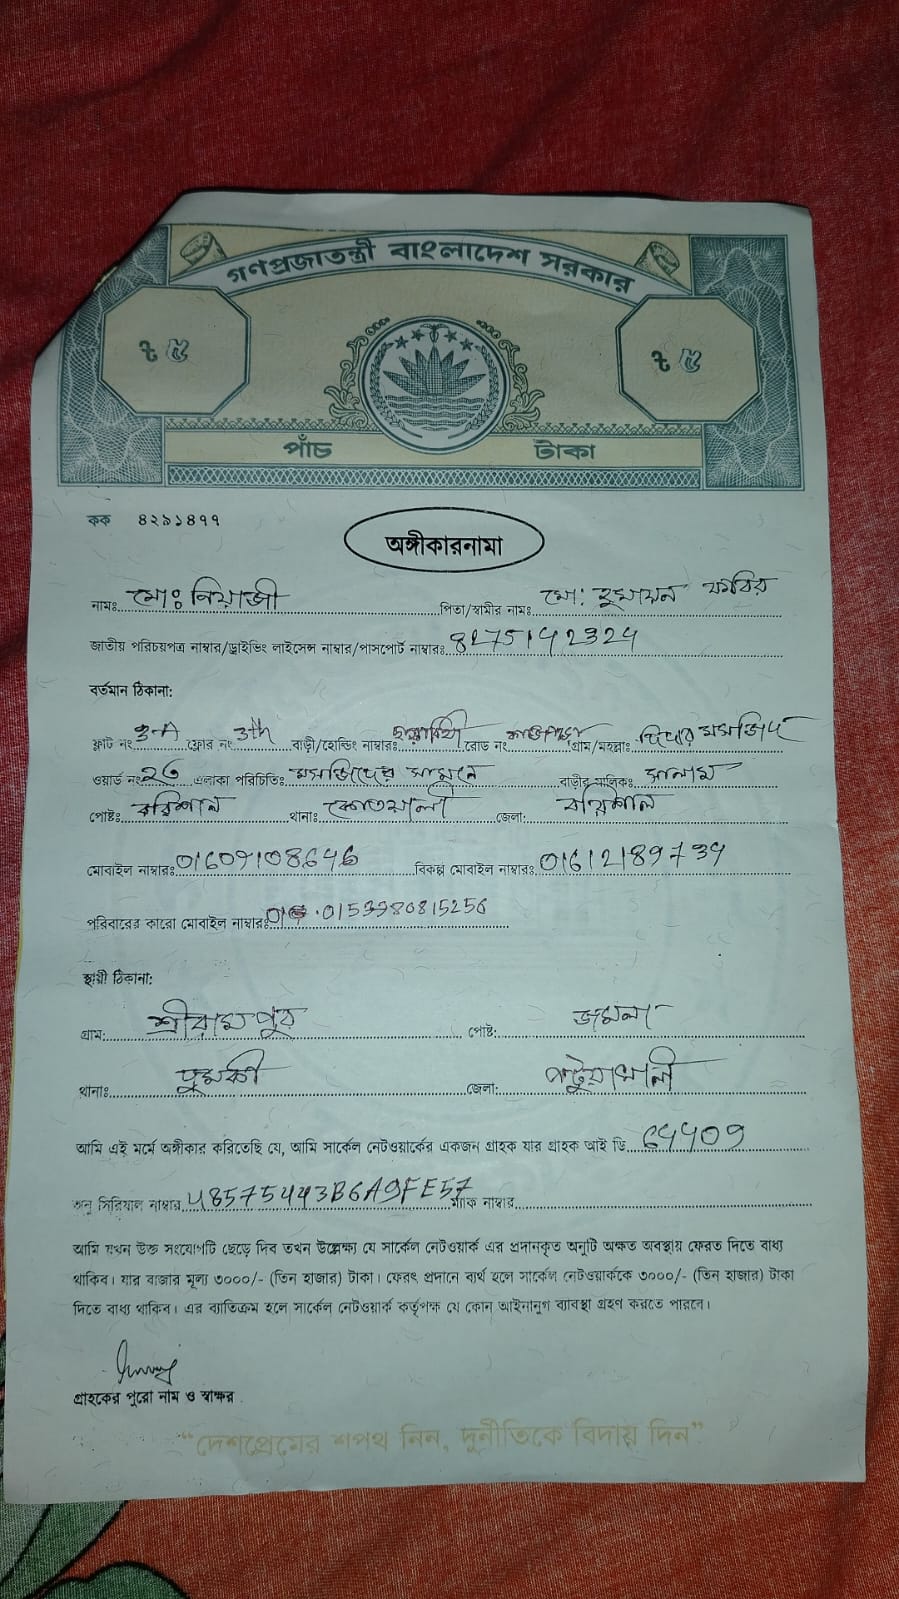 গণপ্রজাতন্ত্রী বাংলাদেশ সরকার
৳ ৫ ৳ ৫
পাঁচ টাকা
কক ৪২৯১৪৭৭
অঙ্গীকারনামা
নামঃ মোঃ নিয়াজী পিতা/স্বামীর নামঃ মো: হুমায়ন কবির
জাতীয় পরিচয়পত্র নাম্বার/ড্রাইভিং লাইসেন্স নাম্বার/পাসপোর্ট নাম্বারঃ 8275142324
বর্তমান ঠিকানা:
ফ্লাট নং 3-A ফ্লোর নং 3th বাড়ী/হোল্ডিং নাম্বারঃ রোড নং গ্রাম/মহল্লাঃ মসজিদ
ওয়ার্ড নং এলাকা পরিচিতিঃ মসজিদের সামনে বাড়ীর মালিকঃ সালাম
পোষ্টঃ বরিশাল থানাঃ কোতয়ালী জেলা: বরিশাল
মোবাইল নাম্বারঃ 01609108646 বিকল্প মোবাইল নাম্বারঃ
পরিবারের কারো মোবাইল নাম্বারঃ
স্থায়ী ঠিকানা:
গ্রাম: শ্রীরামপুর পোষ্ট: জমলা
থানাঃ দুমকী জেলা: পটুয়াখালী
আমি এই মর্মে অঙ্গীকার করিতেছি যে, আমি সার্কেল নেটওয়ার্কের একজন গ্রাহক যার গ্রাহক আই ডি
অনু সিরিয়াল নাম্বার 48575443B6A9FE57 ম্যাক নাম্বার
আমি যখন উক্ত সংযোগটি ছেড়ে দিব তখন উল্লেক্ষ্য যে সার্কেল নেটওয়ার্ক এর প্রদানকৃত অনুটি অক্ষত অবস্থায় ফেরত দিতে বাধ্য
থাকিব। যার বাজার মূল্য ৩০০০/- (তিন হাজার) টাকা। ফেরৎ প্রদানে ব্যর্থ হলে সার্কেল নেটওয়ার্ককে ৩০০০/- (তিন হাজার) টাকা
দিতে বাধ্য থাকিব। এর ব্যতিক্রম হলে সার্কেল নেটওয়ার্ক কর্তৃপক্ষ যে কোন আইনানুগ ব্যাবস্থা গ্রহণ করতে পারবে।
গ্রাহকের পুরো নাম ও স্বাক্ষর
“দেশপ্রেমের শপথ নিন, দুর্নীতিকে বিদায় দিন”